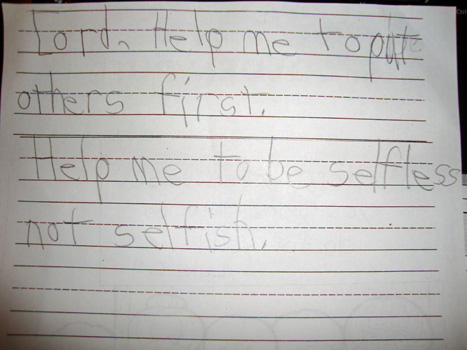 Lord, Help me to put
others first.
Help me to be selfless
not selfish.